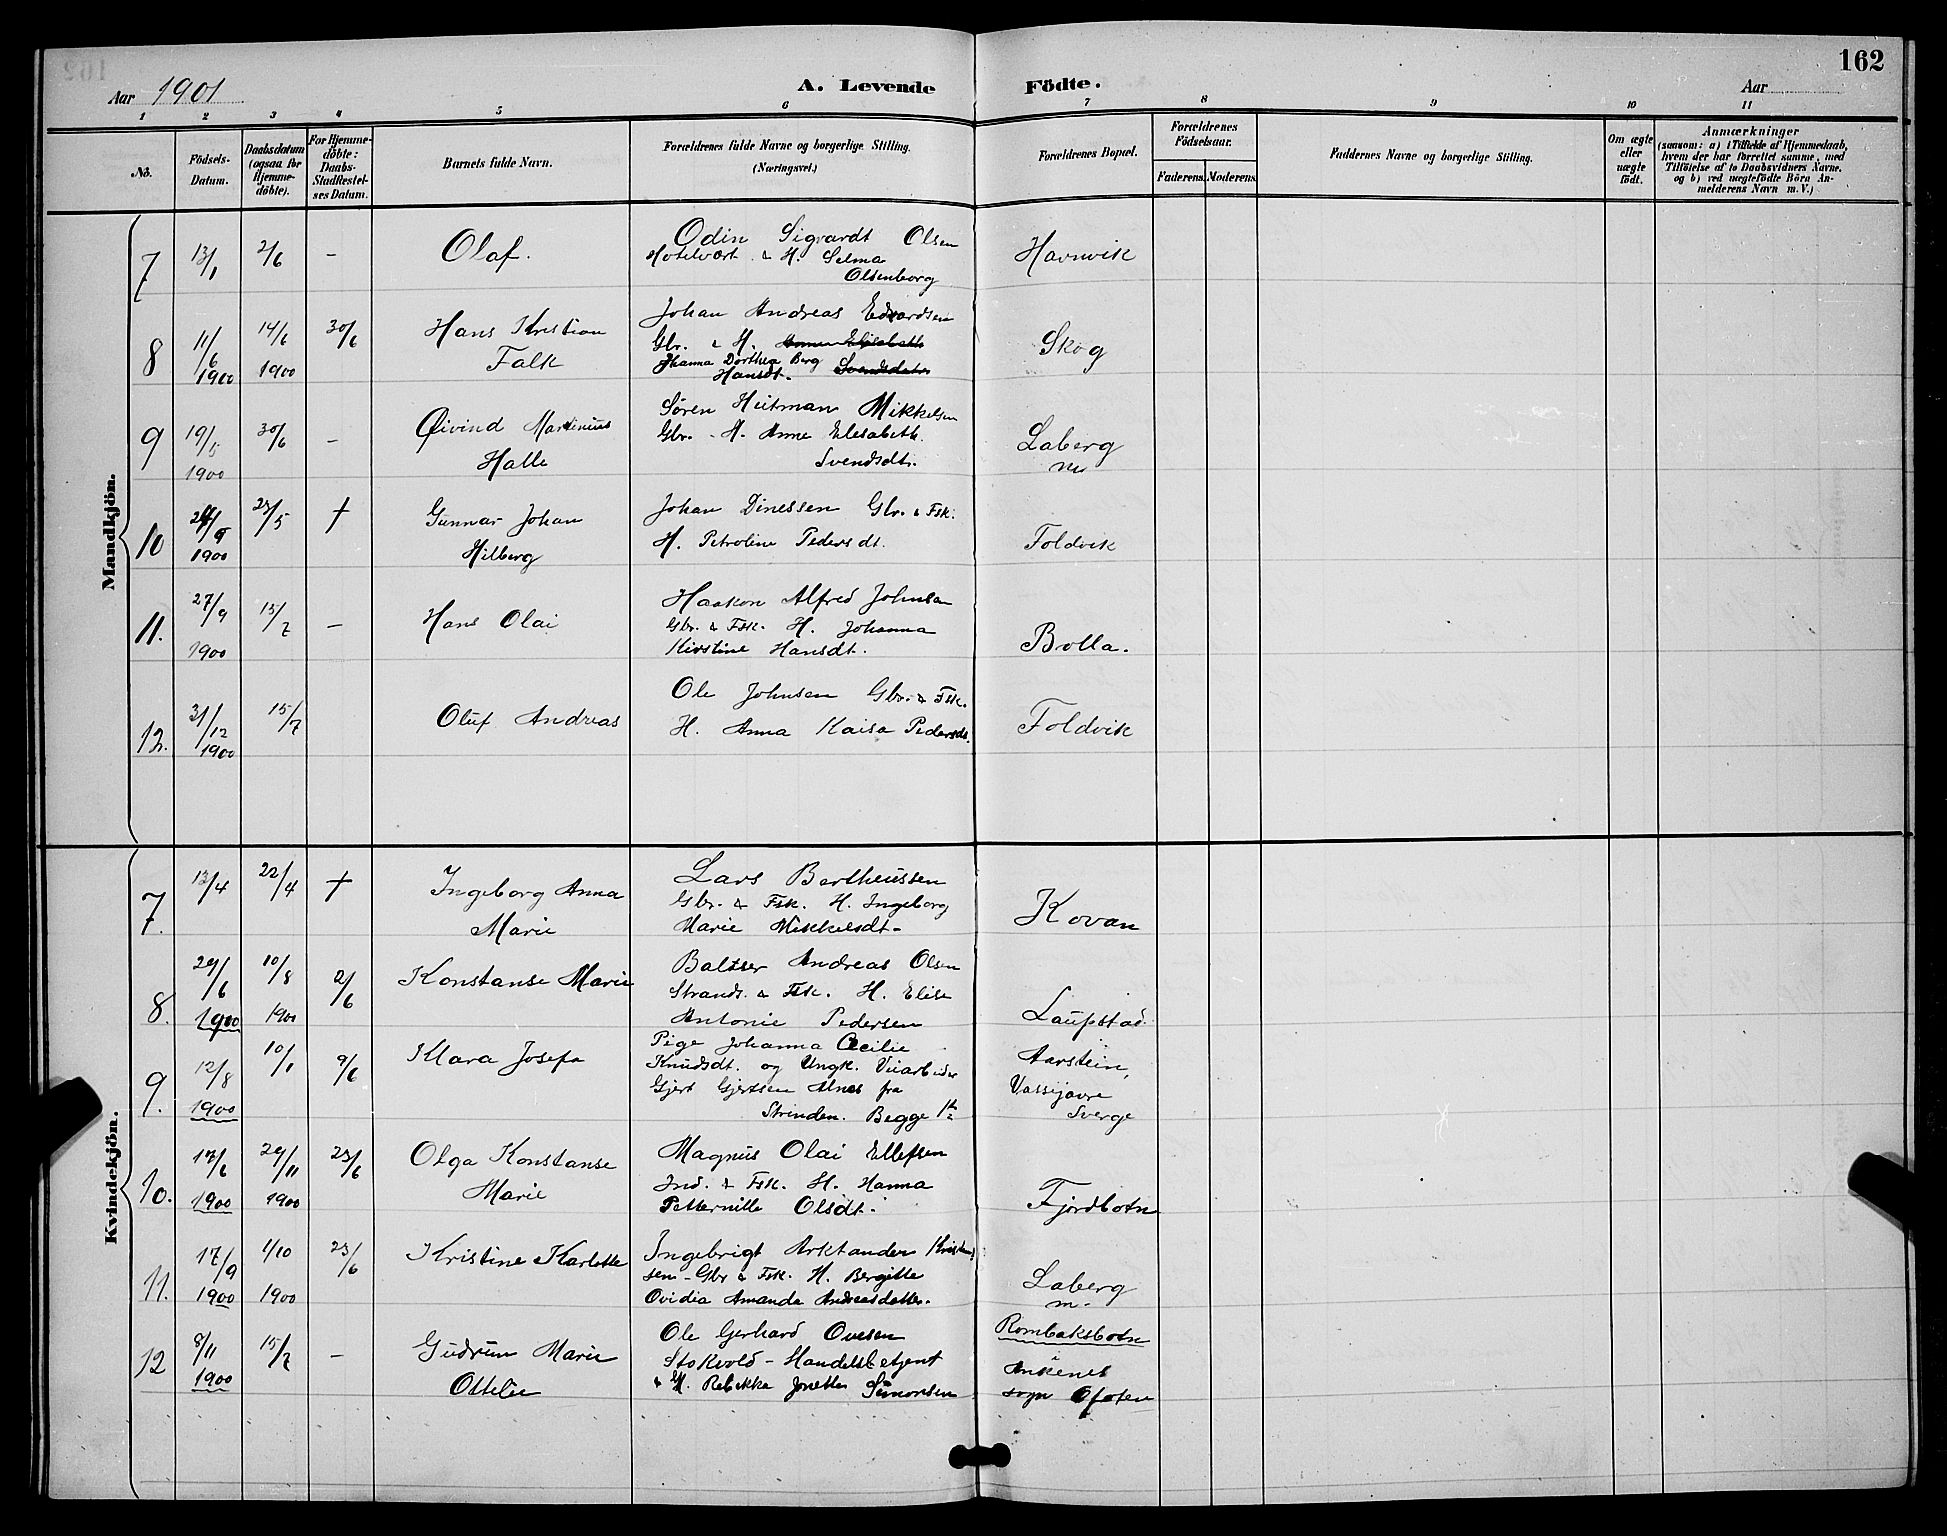 162
Aar 1901
A. Levende Födte.
Aar
1 2 3 4 5 6 7 8 9 10 11
No.
Födsels-
Datum.
Daabsdatum
(ogsaa for
Hjemme-
döbte).
For Hjemme-
döbte:
Daabs-
Stadfestel-
ses Datum.
Barnets fulde Navn.
Forældrenes fulde Navne og borgerlige Stilling.
(Næringsvei.)
Forældrenes Bopæl.
Forældrenes
Födselsaar.
Faderens. Moderens.
Faddernes Navne og borgerlige Stilling.
Om ægte
eller
uægte
födt.
Anmærkninger
(saasom: a) i Tilfælde af Hjemmedaab,
hvem der har forrettet samme, med
Tilföielse af to Daabsvidners Navne,
og b) ved uægtefödte Börn An-
melderens Navn m. V.)
Mandkjön.
7 13/1 2/6 - Olaf.
Odin Sigvardt Olsen
Hotelvært & H. Selma
Olsenborg
Havnvik
8 11/6 1900 14/6 1900 30/6
Hans Kristian
Falk
Johan Andreas Edvardsen
Gbr. & H. Anne Elisabeth
Jhanna Dorthea Berg Svendsdatr
Hansdt.
Skog
9 19/5 1900 30/6 -
Øivind Martinius
Halle
Søren Heitman Mikkelsen
Gbr. - H. Anne Elesabeth
Svendsdt.
Laberg
10 1900 27/5 †
Gunnar Johan
Hilberg
Johan Dinessen Gbr. & Fsk.
H. Petroline Pedersdt.
Foldvik
11. 27/9 1900 15/7 -
Hans Olai
Haakon Alfred Johnsen
Gbr. & Fsk. H. Johanna
Kirstine Hansdt.
Bolla.
12. 31/12 1900 15/7
Oluf Andreas
Ole Johnsen Gbr. & Fsk.
H. Anna Kaisa Pedersdt.
Foldvik
Kvindekjön.
7. 13/4 22/4 †
Ingeborg Anna
Marie
Lars Bertheussen
Gbr. & Fsk. H. Ingeborg
Marie Mikkelsdt-
Kovan
8. 29/6 1900 10/8 1900 2/6
Konstanse Marie
Baltser Andreas Olsen
Strands. & Fsk. H. Elise
Antonie Pedersen
Laupstad.
9. 12/8 1900 10/1 9/6
Klara Josefa
Pige Johanna Cecilie
Knudsdt. og Ungk. Veiarbeider
Gjert Gjertsen Alnes fra
Strinden. Begge 1ste
Aarstein,
Vassijavre
Sverge
10. 17/6 1900 29/11 1900 23/6
Olga Konstanse
Marie
Magnus Olai Ellefsen
Ind. & Fsk. H. Hanna
Petternille Olsdt.
Fjordbotn
11. 17/9 1900 1/10 1900 23/6
Kristine Karlotte
Ingebrigt Arktander Kristen-
sen - Gbr & Fsk. H. Bergitte
Ovidia Amanda Andreasdatter.
Laberg
12 8/11 1900 15/7 -
Gudrun Marie
Ottelie
Ole Gerhard Ovesen
Stokvold - Handelsbetjent
& H. Rebekka Jonette Simonsen
Rombaksbotn
i
Ankenes
sogn Ofoten